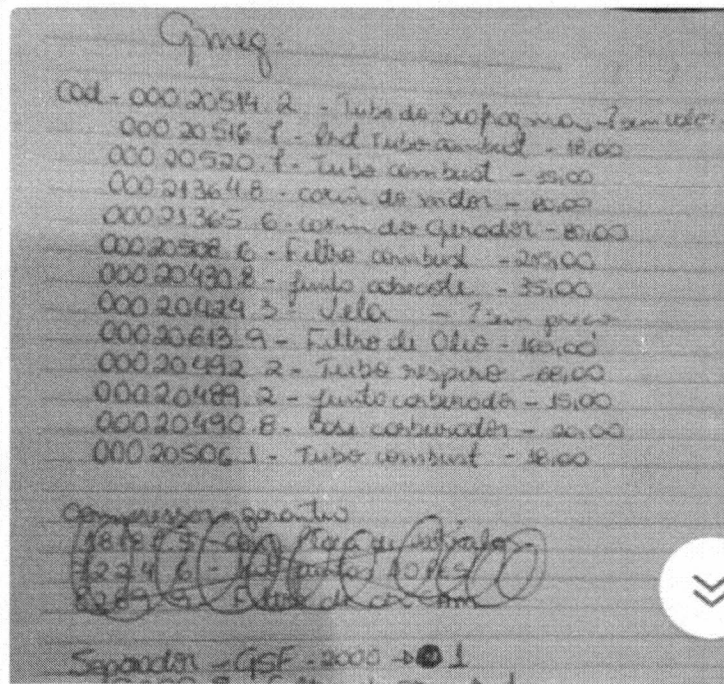 Gmeg.
Cod - 00020514.2 - Tubo do diafragma - ? sem valor
00020516.1 - Tubo combust - 18,00
00020520.1 - Tubo combust - 35,00
00021364.8 - coxim do motor - 80,00
00021365.6 - coxim do Gerador - 80,00
00020508.6 - Filtro combust
00020430.8 - junto cabecote - 35,00
00020424.3 - Vela - ? sem preço
00020613.9 - Filtro de Oleo
00020492.2 - Tubo respiro - 68,00
00020489.2 - junto carburador - 15,00
00020490.8 - Base carburador - 20,00
00020506.1 - Tubo combust - 18,00
Compressor garantia
Placa de
Filtro de ar
Separador - GSF - 2000 → 1